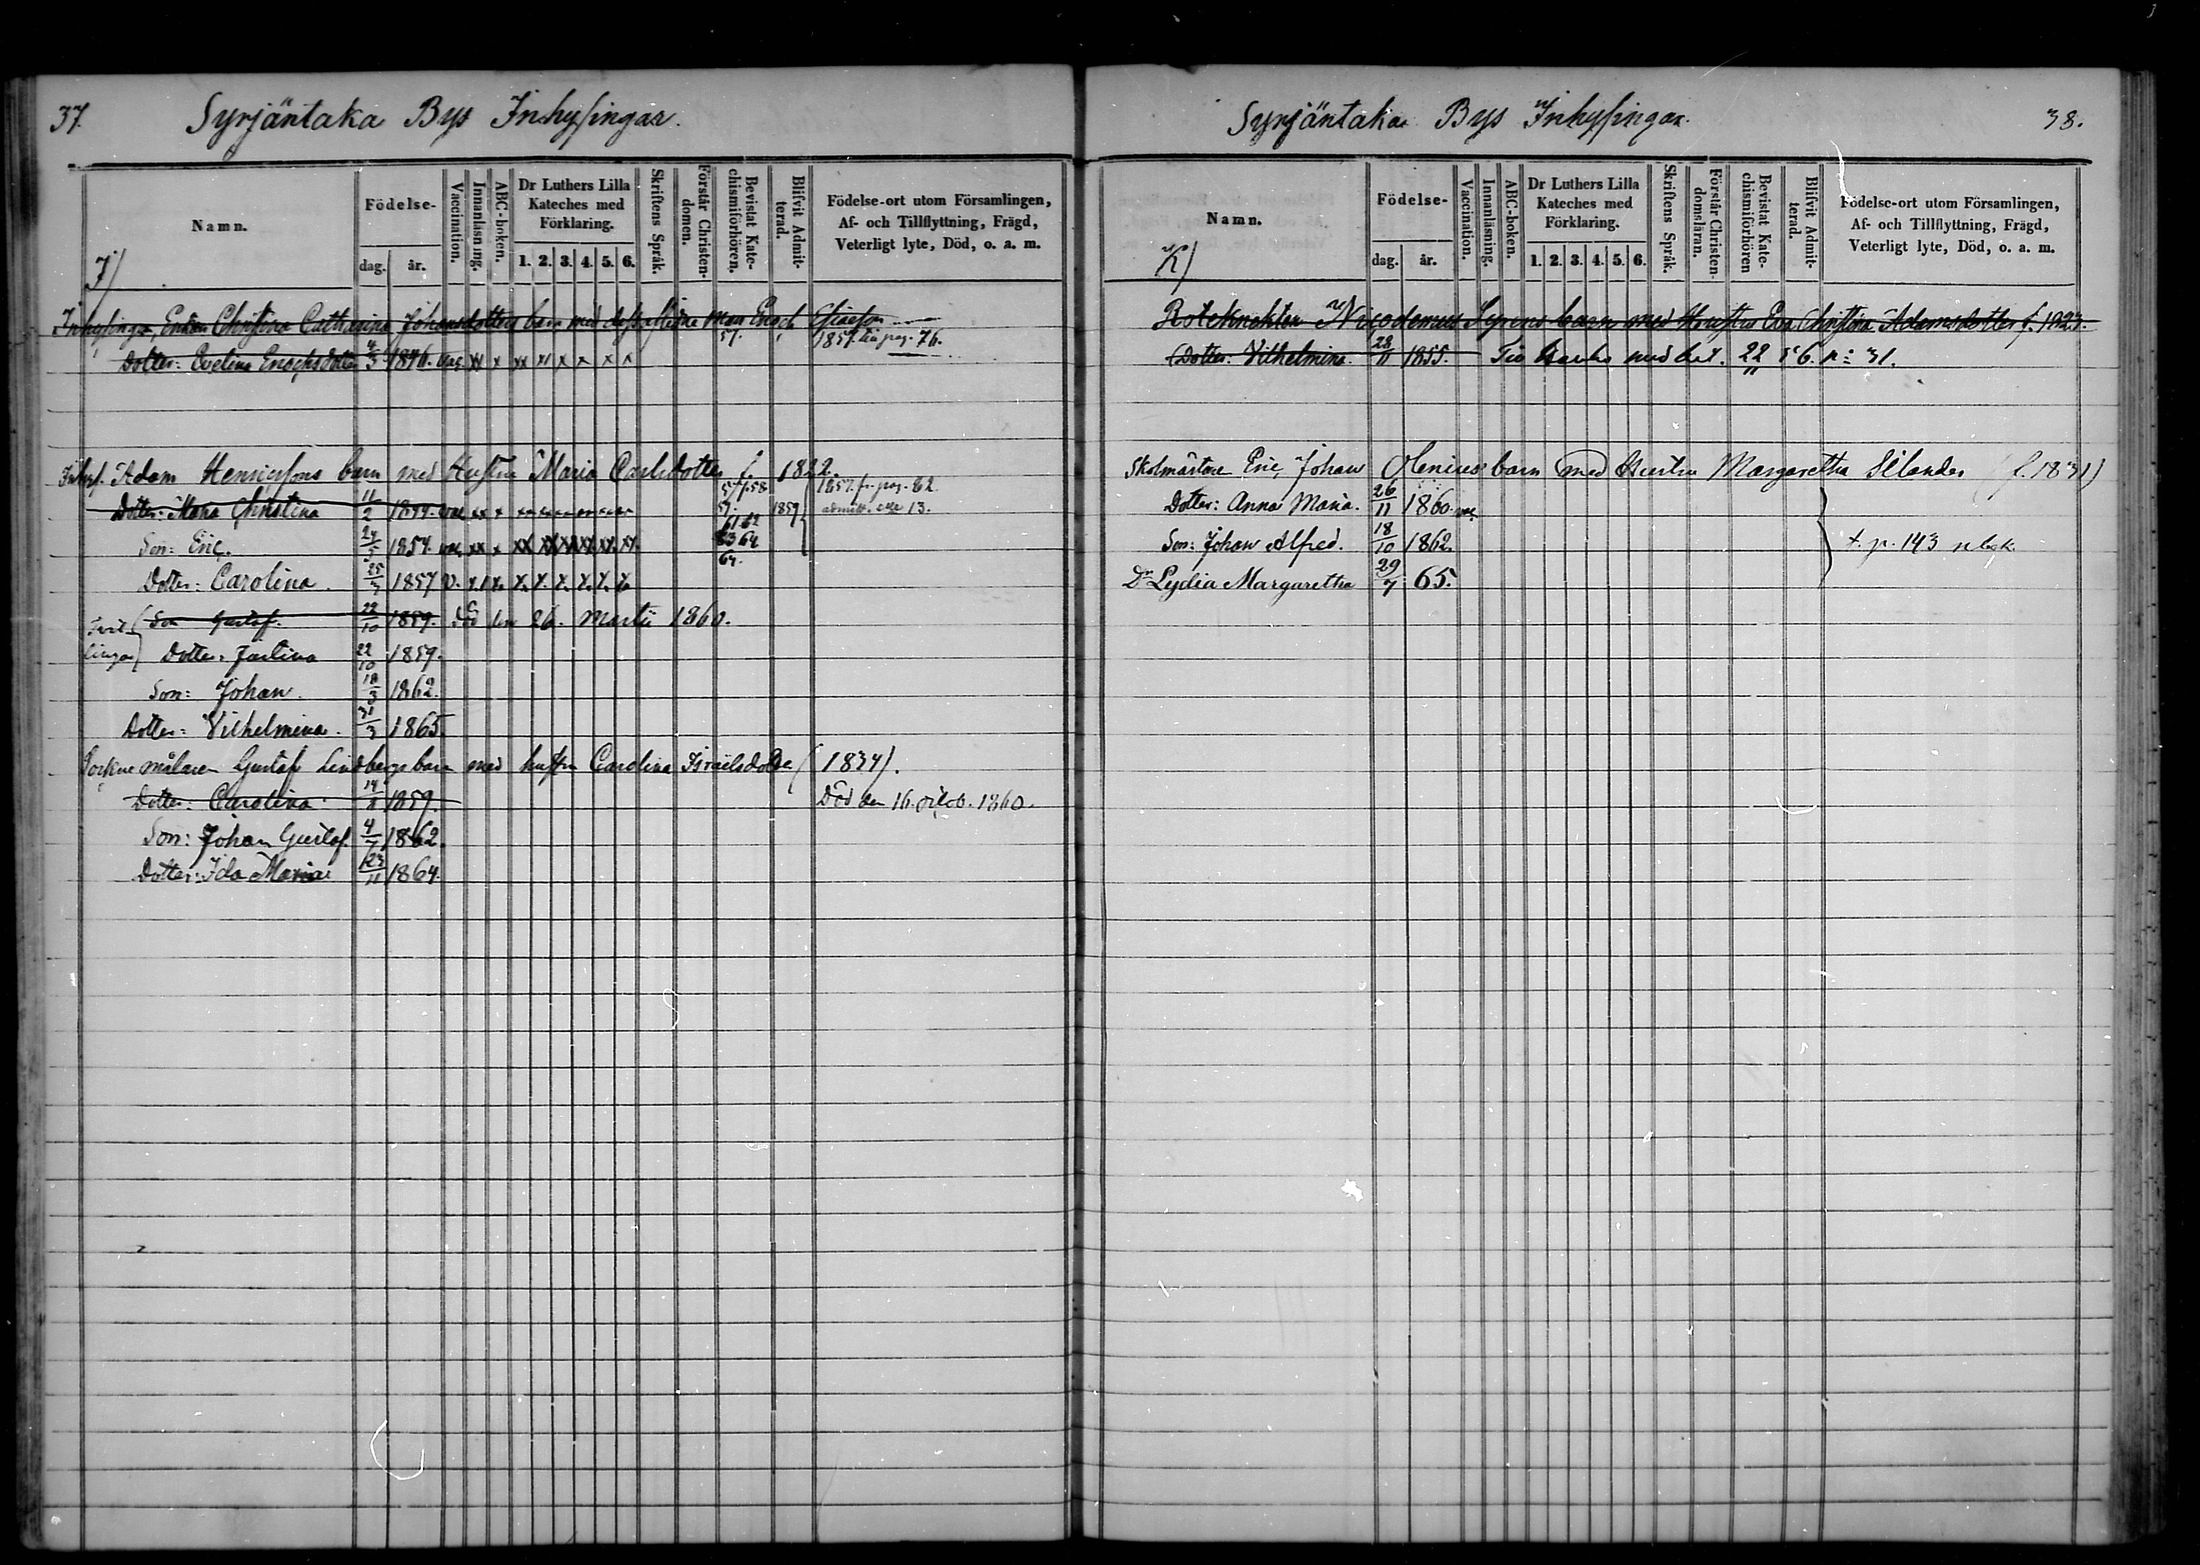 37.
Syrjäntaka Bys Inhysingar.
Namn.
Födelse-
dag. år.
Vaccination.
Innanläsning.
ABC-boken.
Dr Luthers Lilla Kateches med Förklaring.
1. 2. 3. 4. 5. 6.
Skriftens Språk.
Förstår Christendomen.
Bevistat Katechismiförhören.
Blifvit Admitterad.
Födelse-ort utom Församlingen,
Af- och Tillflyttning, Frägd,
Veterligt lyte, Död, o. a. m.
J/
Inhysinge Enkan Christina Catharina Johansdotters barn med dess aflidne man Enoch
Dotter: Evelina Enochsdotter 4/5 1846. vac xx x xx x x x x x 57. 1857 till pag. 76.
Inhys. Adam Henricssons barn med Hustru Maria Carlsdotter f. 1822.
Dotter: Maria Christina 11/2 1844. vac xx x 57.58 59. 1859 1857 fr. pag. 82 admitt. 13.
Son: Eric. 24/5 1854. vac. xx x xx xx xx xx xx xx. 61 62 63 64 64.
Dotter: Carolina. 25/3 1857 v. x.1 x. x. x. x. x. x. x.
Son Gustaf. 22/10 1859. död den 26. Martii 1860.
Tvillingar Dotter: Justina 22/10 1859.
Son: Johan. 18/3 1862.
Dotter: Vilhelmina. 31/3 1865
Sockne målaren Gustaf Lindbergs barn med hustru Carolina Israelsdotter (1834).
Dotter: Carolina. 14/8 1859. Död den 16. octob. 1860.
Son: Johan Gustaf. 4/7 1862.
Dotter: Ida Maria 23/11 1864.
Syrjäntaka Bys Inhysingar.
38.
Namn.
Födelse-
dag. år.
Vaccination.
Innanläsning.
ABC-boken.
Dr Luthers Lilla Kateches med Förklaring.
1. 2. 3. 4. 5. 6.
Skriftens Språk.
Förstår Christendomsläran.
Bevistat Katechismiförhören
Blifvit Admitterad.
Födelse-ort utom Församlingen,
Af- och Tillflyttning, Frägd,
Veterligt lyte, Död, o. a. m.
K/
Roteknekten Nicodemus Syrens barn med Hustru Eva Christina Adamsdotter f. 1823.
Dotter: Vilhelmina. 28/11 1855. Till med bet. 22 56. n: 31.
Skolmästare Eric Johan Olenius barn med Hustru Margaretha Selander (f. 1831)
Dotter: Anna Maria. 26/11 1860. vac
Son: Johan Alfred. 18/10 1862. t. p. 143
Dr Lydia Margaretha 29/7 65.